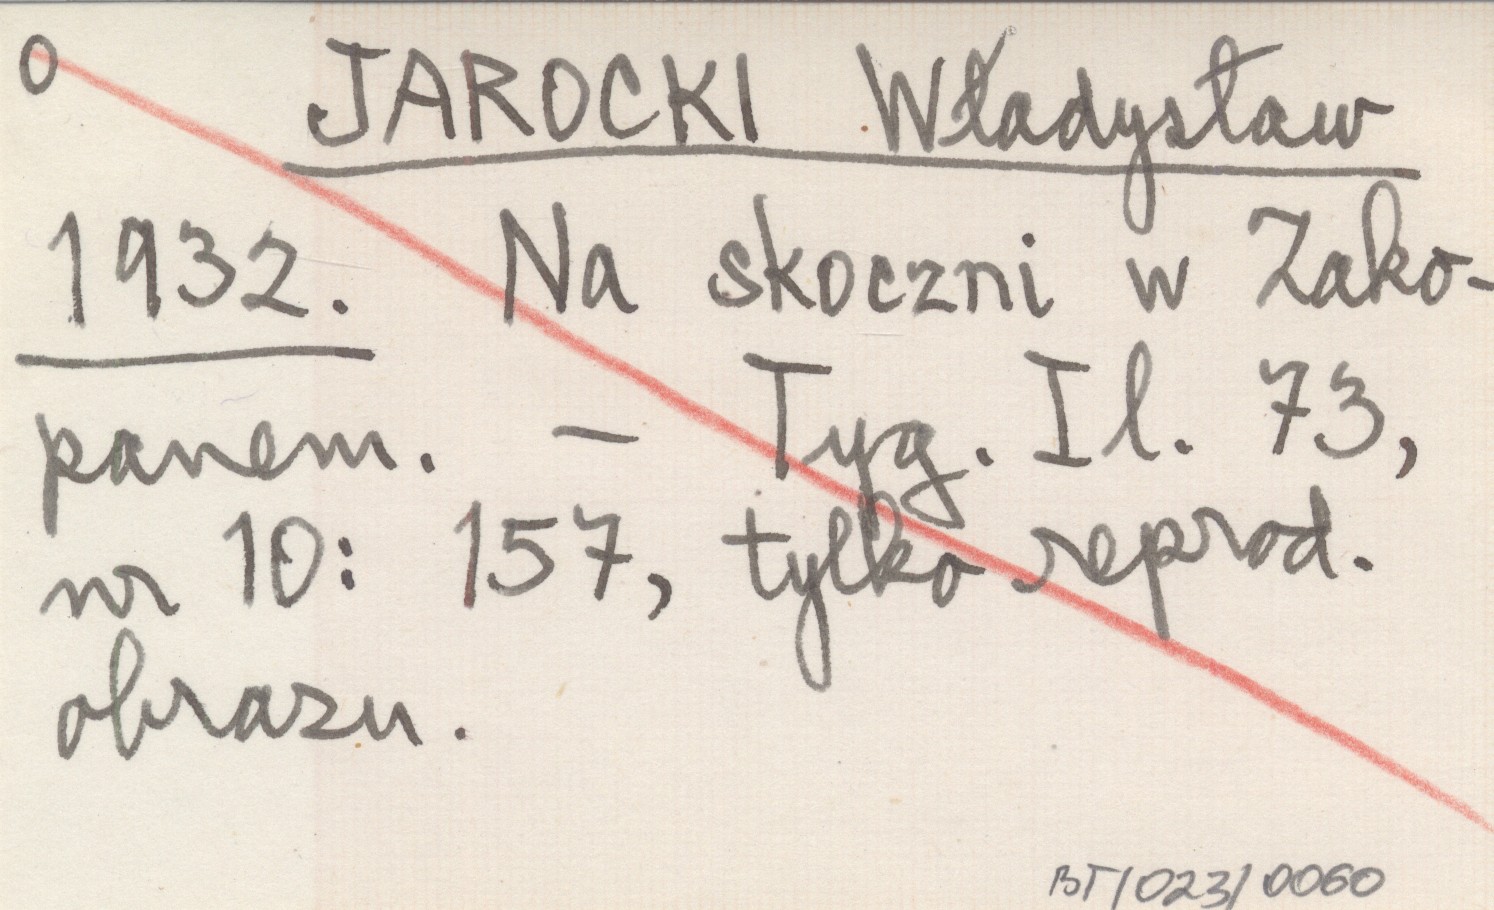 0 JAROCKI Władysław
1932. Na skoczni w Zako-
panem. – Tyg. Il. 73,
nr 10: 157, tylko reprod.
obrazu.
BT/023/0060